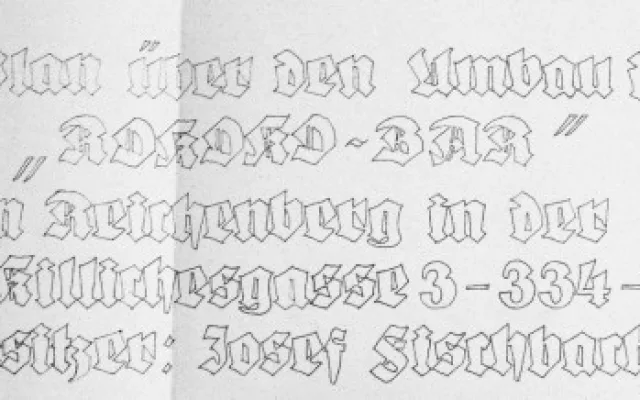 Plan über den Umbau d
„ROKOKO-BAR”
in Reichenberg in der
Killichesgasse 3-334-
sitzer: Josef Fischbach